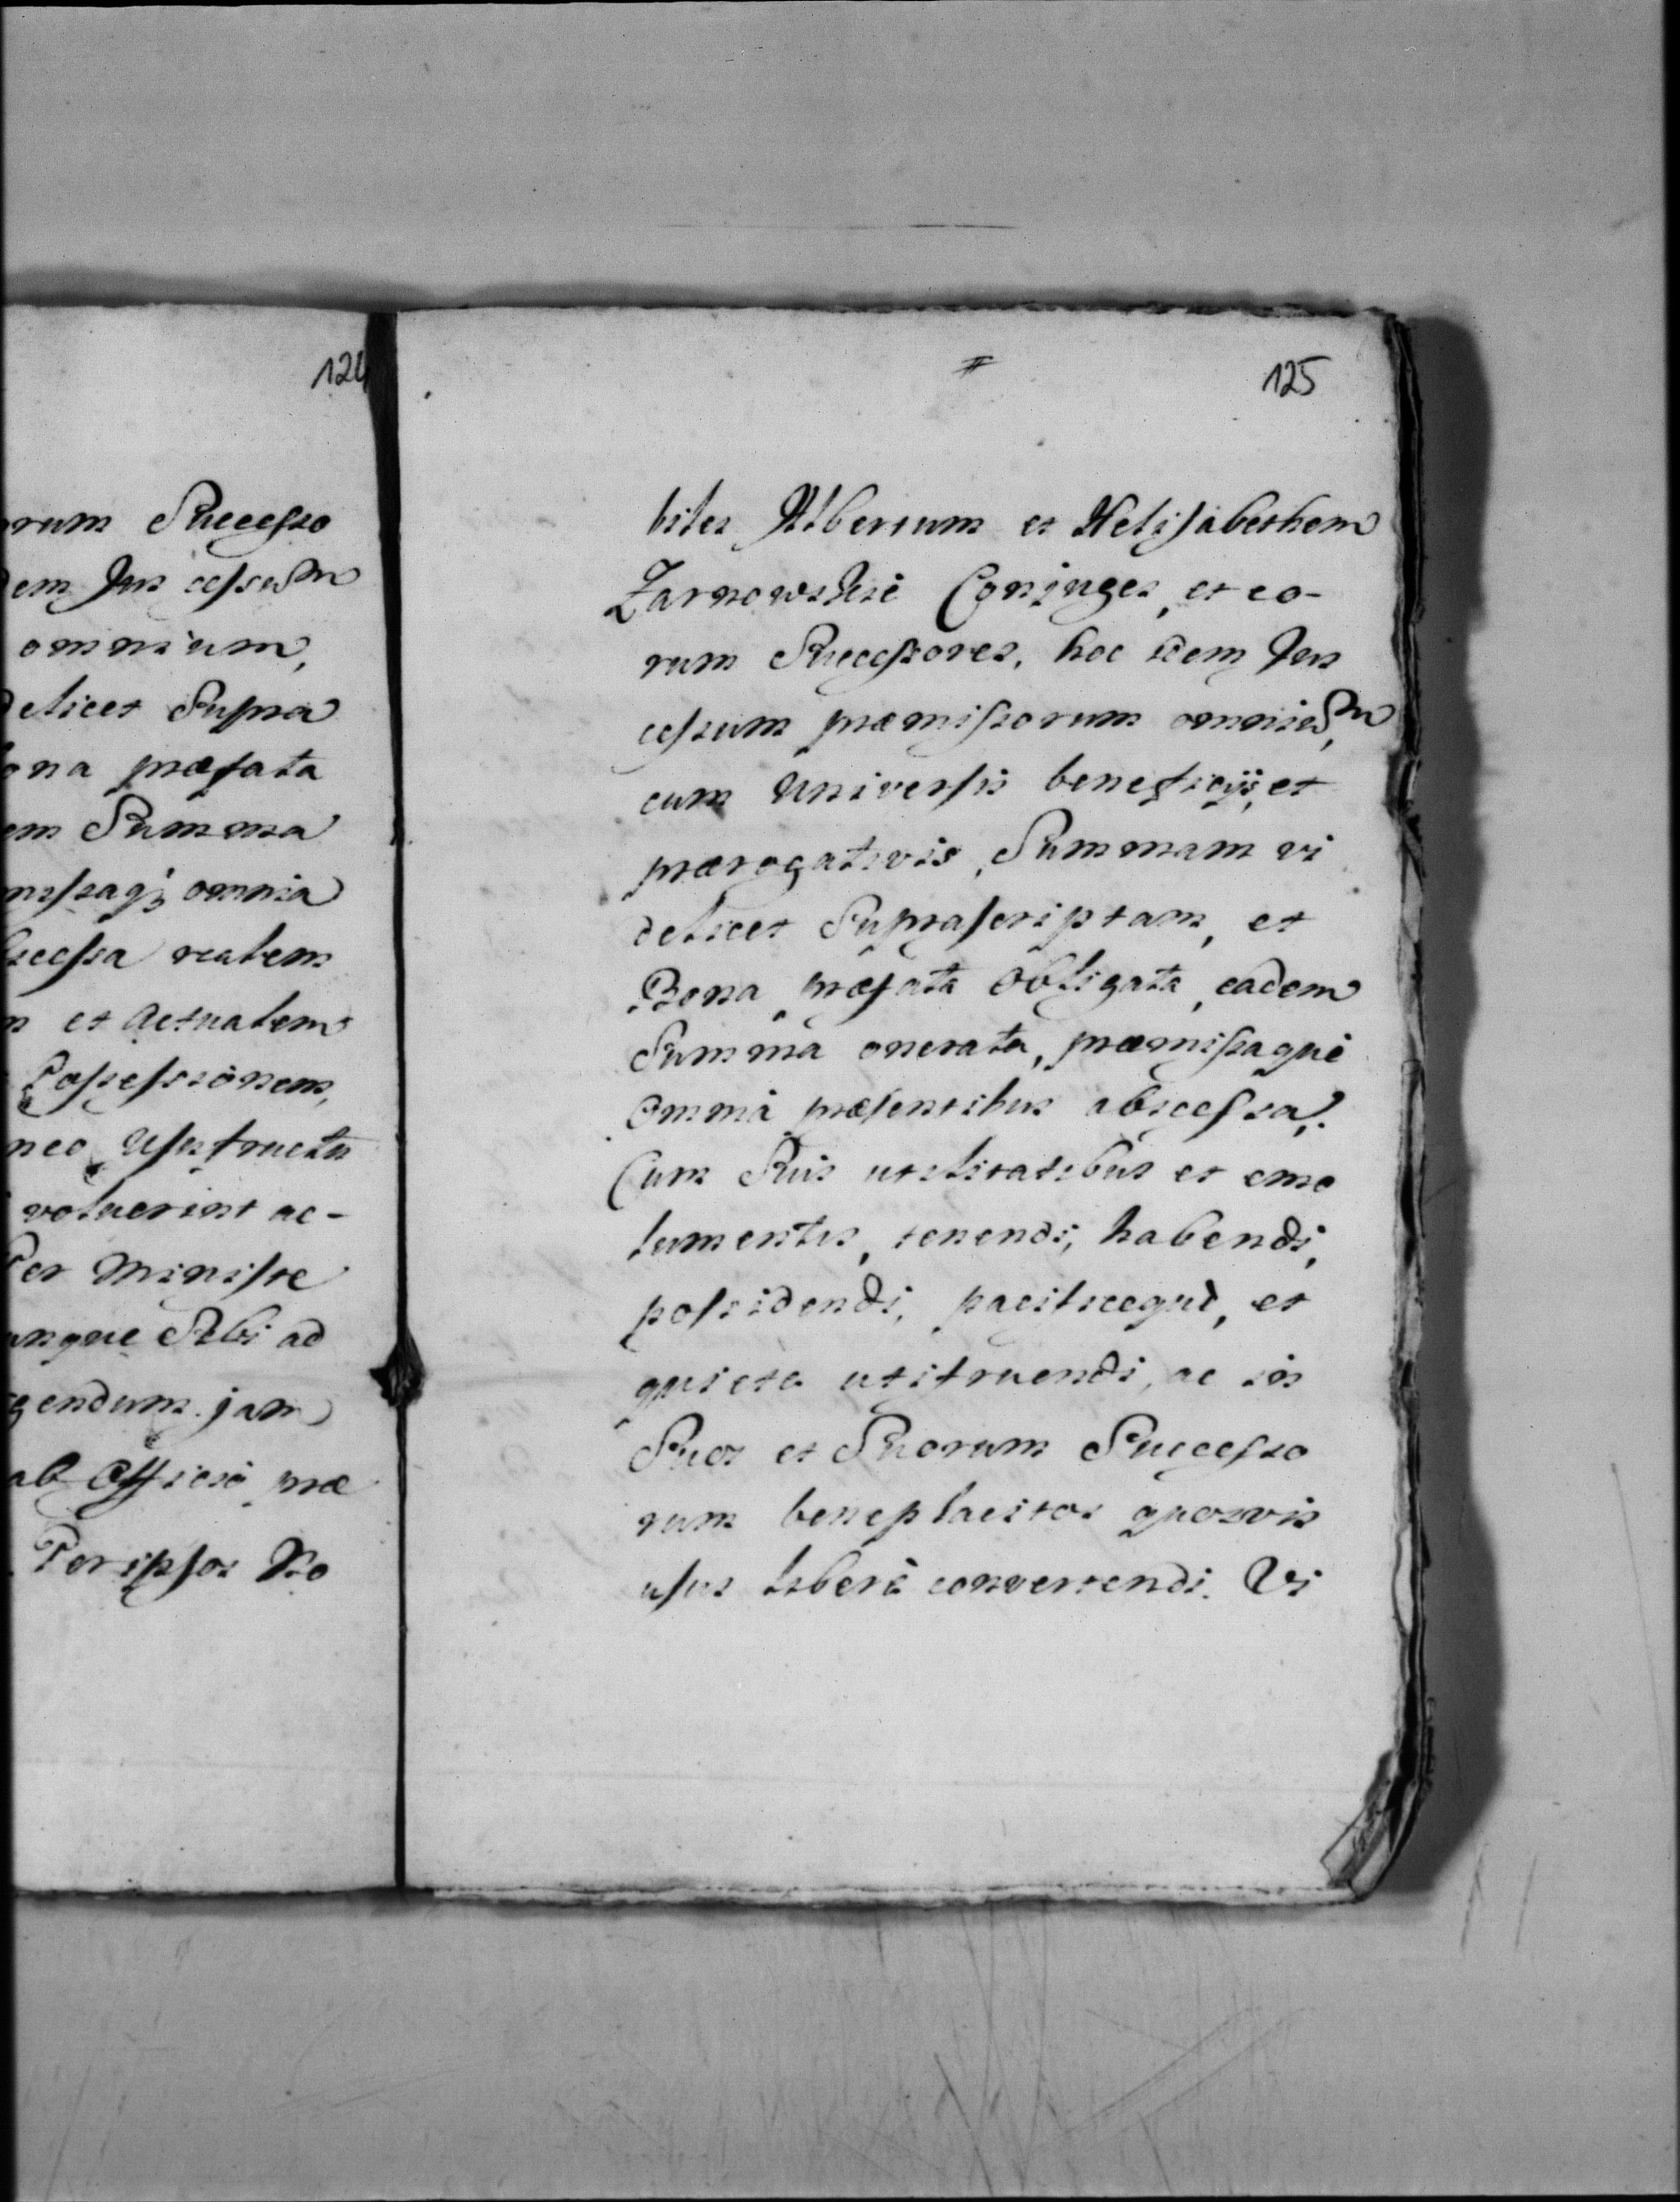 124
rum Successo
dem Jus cessum
omnium,
delicet Supra
ona præfata
em Summa
missaq; omnia
bscessa realem
n et actualem
Possessionem,
neo Usufructu
voluerint ac-
Per Ministe
unque Sibi ad
gendum jam
ab Officio præ
Per ipsos No
#
125
biles Albertum et Helisabethem
Zarnowskie Conjuges, et eo-
rum Successores, hoc idem Jus
cessum præmissorum omnium,
cum Universis beneficijs, et
prærogativis, Summam vi
delicet Suprascriptam, et
Bona præfata Obligata, eadem
Summa onerata, præmissaque
omnia præsentibus abscessa.
Cum Suis utilitatibus et emo
lumentis, tenendi, habendi,
possidendi, pacificeque, et
quiete utifruendi, ac in
Suos et Suorum Successo
rum beneplacitos quosvis
usus liberè convertendi. Vi